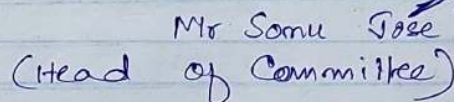 Mr Somu Jose
(Head of Committee)